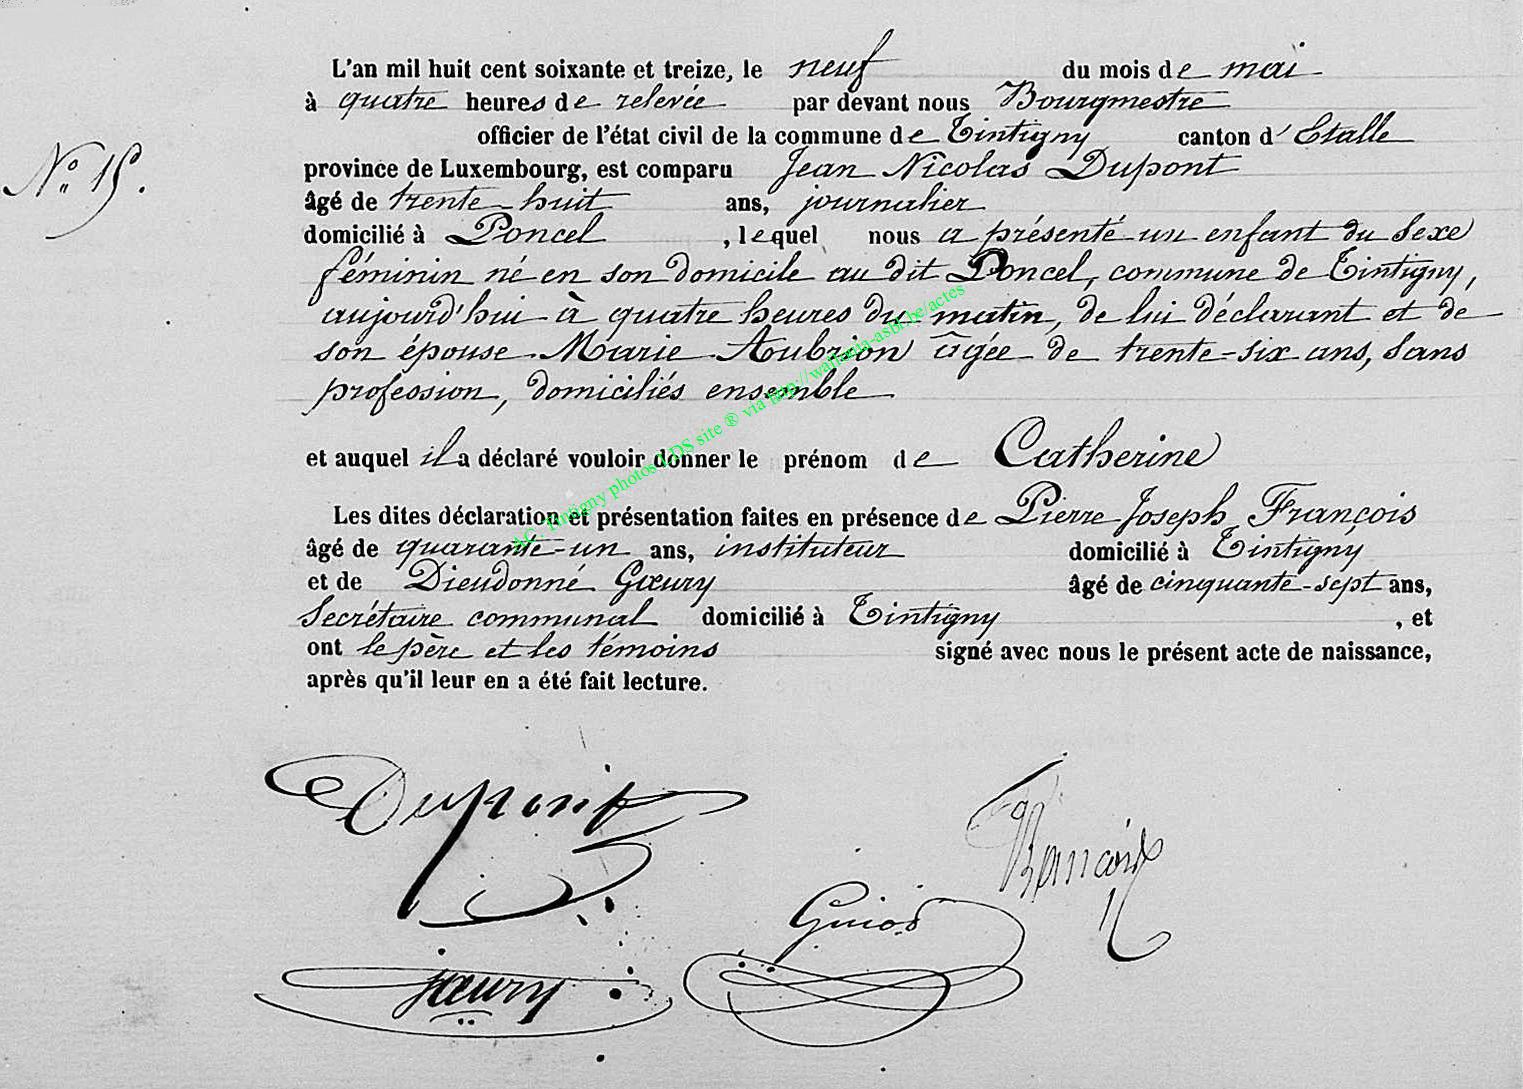 L'an mil huit cent soixante et treize, le neuf du mois de mai
à quatre heures de relevée par devant nous Bourgmestre
officier de l'état civil de la commune de Tintigny canton d'Etalle
province de Luxembourg, est comparu Jean Nicolas Dupont
N° 15.
âgé de trente-huit ans, journalier
domicilié à Poncel, lequel nous a présenté un enfant du sexe
féminin né en son domicile au dit Poncel, commune de Tintigny,
aujourd'hui à quatre heures du matin, de lui déclarant et de
son épouse Marie Aubrion âgée de trente-six ans, sans
profession, domiciliés ensemble
et auquel il a déclaré vouloir donner le prénom de Catherine
Les dites déclaration et présentation faites en présence de Pierre Joseph François
âgé de quarante-un ans, instituteur domicilié à Tintigny
et de Dieudonné Gœury âgé de cinquante-sept ans,
Secrétaire communal domicilié à Tintigny, et
ont le père et les témoins signé avec nous le présent acte de naissance,
après qu'il leur en a été fait lecture.
AC. Tintigny photos LDS site ® via http://wallonia-asbl.be/actes
Dupont
François
Guiot
Gœury